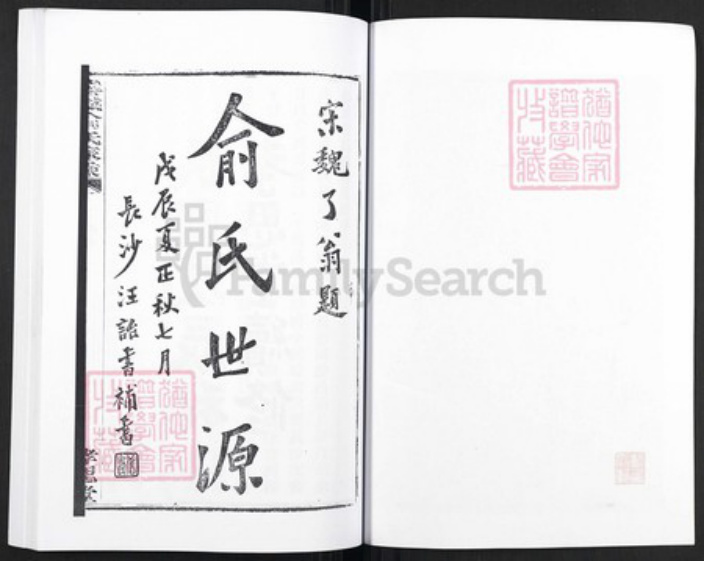 宋魏了翁題
俞氏世源
戊辰夏正秋七月
長沙汪詒書補書
猶他家
譜學會
收藏
猶他家
譜學會
收藏
FamilySearch